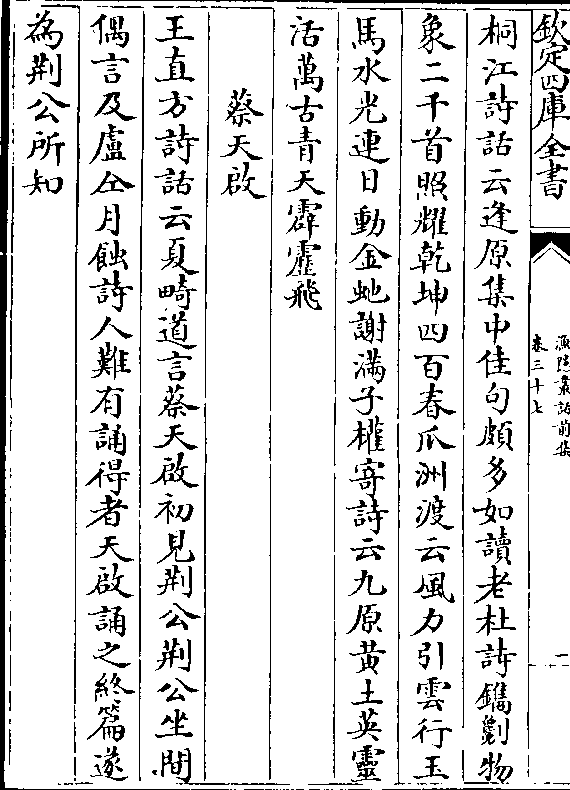 欽定四庫全書
漁隠叢話前集
卷三十七
一
桐江詩話云逢原集中佳句頗多如讀老杜詩鐫劖物
象二千首照耀乾坤四百春爪洲渡云風力引雲行玉
馬水光連日動金虵謝滿子權寄詩云九原黄土英靈
活萬古青天霹靂飛
蔡天啟
王直方詩話云夏畸道言蔡天啟初見荆公荆公坐間
偶言及盧仝月蝕詩人難有誦得者天啟誦之終篇遂
為荆公所知